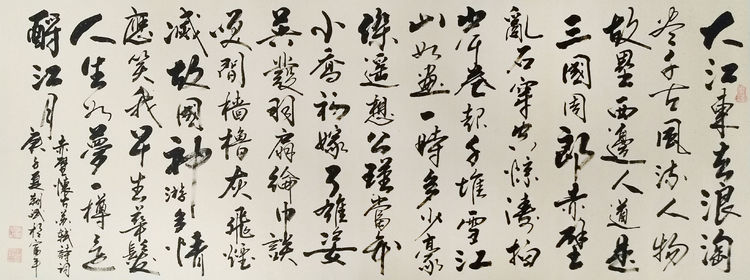 大江東去浪淘
尽千古風流人物
故壘西邊人道是
三國周郎赤壁
亂石穿空惊濤拍
岸卷起千堆雪江
山如畫一時多少豪
傑遥想公瑾當年
小喬初嫁了雄姿
英發羽扇綸巾談
笑間檣櫓灰飛煙
滅故國神游多情
應笑我早生華髮
人生如夢一樽还
酹江月
赤壁懷古苏軾詩詞
庚子夏於富平